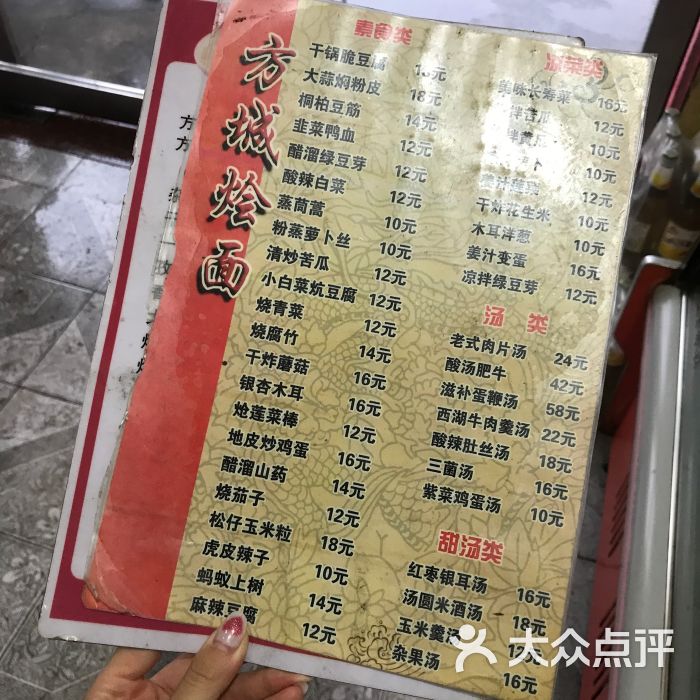 方城烩面
素食类
干锅脆豆腐
大蒜焖粉皮 18元
桐柏豆筋 14元
韭菜鸭血 12元
醋溜绿豆芽 12元
酸辣白菜 12元
蒸茼蒿 10元
粉蒸萝卜丝 10元
清炒苦瓜 12元
小白菜炕豆腐 12元
烧青菜 12元
烧腐竹 14元
干炸蘑菇 16元
银杏木耳 16元
炝莲菜棒 12元
地皮炒鸡蛋 16元
醋溜山药 14元
烧茄子 12元
松仔玉米粒 18元
虎皮辣子 10元
蚂蚁上树 14元
麻辣豆腐 12元
凉菜类
美味长寿菜 16元
拌苦瓜 12元
拌黄瓜 10元
卜 10元
12元
干炸花生米 10元
木耳洋葱 10元
姜汁变蛋 16元
凉拌绿豆芽 12元
汤 类
老式肉片汤 24元
酸汤肥牛 42元
滋补蛋鞭汤 58元
西湖牛肉羹汤 22元
酸辣肚丝汤 18元
三菌汤 16元
紫菜鸡蛋汤 10元
甜汤类
红枣银耳汤 16元
汤圆米酒汤 18元
玉米羹汤 12元
杂果汤 16元
大众点评